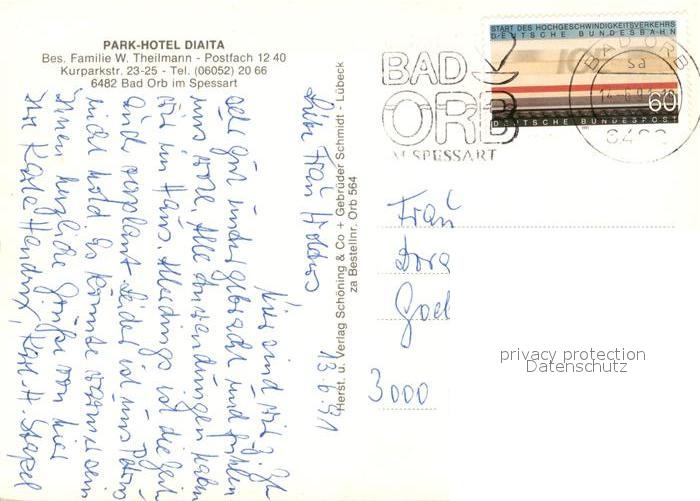 PARK-HOTEL DIAITA
Bes. Familie W. Theilmann - Postfach 12 40
Kurparkstr. 23-25 - Tel. (06052) 20 66
6482 Bad Orb im Spessart
13.6.91
Liebe Frau
Hier sind wir z. Zt.
sehr gut untergebracht und fühlen
uns wohl. Alle Anwendungen haben
wir im Haus. Allerdings ist die Zeit
verplant. Leider ist uns Petrus
nicht hold. Es könnte wärmer sein
Ihnen herzliche Grüße von hier
Ihre Käthe
Herst. u. Verlag Schöning & Co + Gebrüder Schmidt - Lübeck
za Bestellnr. Orb 564
START DES HOCHGESCHWINDIGKEITSVERKEHRS
DEUTSCHE BUNDESBAHN
60
DEUTSCHE BUNDESPOST
BAD
ORB
IM SPESSART
BAD ORB
Frau
Dora
Goel
3000
privacy protection
Datenschutz